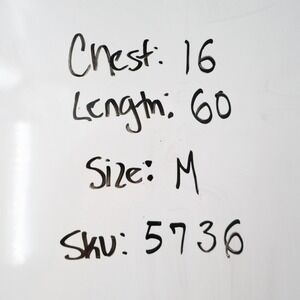 Chest: 16
Length: 60
Size: M
SKU: 5736